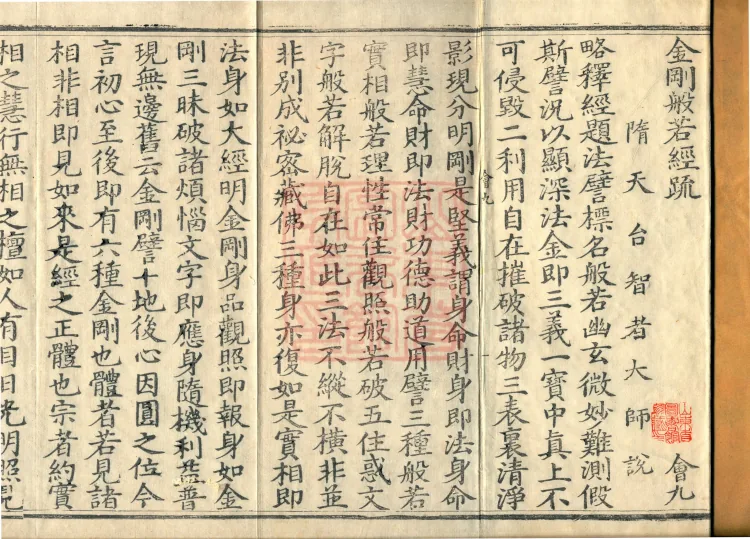 金剛般若經疏 會九
隋天台智者大師說
略釋經題法譬標名般若幽玄微妙難測假
斯譬況以顯深法金即三義一寶中真上不
可侵毀二利用自在摧破諸物三表裏清淨
會九
影現分明剛是堅義謂身命財身即法身命
即慧命財即法財功德助道用譬三種般若
實相般若理性常住觀照般若破五住惑文
字般若解脫自在如此三法不縱不橫非並
非別成祕密藏佛三種身亦復如是實相即
法身如大經明金剛身品觀照即報身如金
剛三昧破諸煩惱文字即應身隨機利益普
現無邊舊云金剛譬十地後心因圓之位今
言初心至後即有六種金剛也體者若見諸
相非相即見如來是經之正體也宗者約實
相之慧行無相之檀如人有目日光明照見